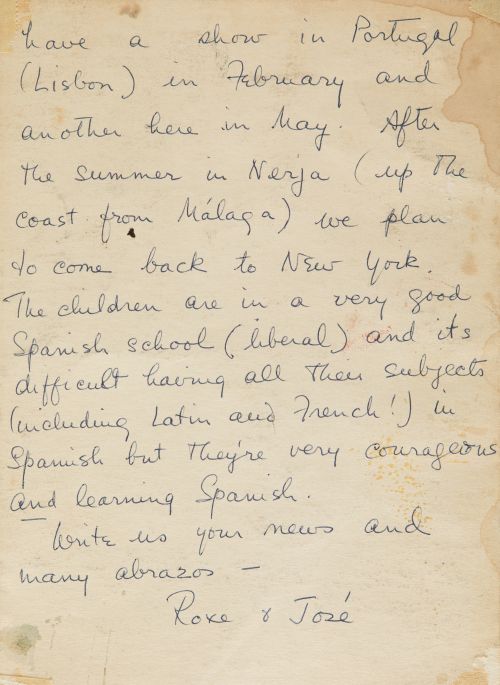 have a show in Portugal
(Lisbon) in February and
another here in May. After
the summer in Nerja (up the
coast from Málaga) we plan
to come back to New York.
The children are in a very good
Spanish school (liberal) and its
difficult having all their subjects
(including Latin and French!) in
Spanish but they're very courageous
and learning Spanish.
— Write us your news and
many abrazos —
Roxe & José